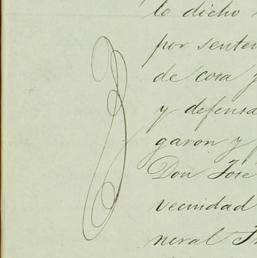 to dicho
por senten
de cosa
y defensa
garon y
Don José
vecindad
neral